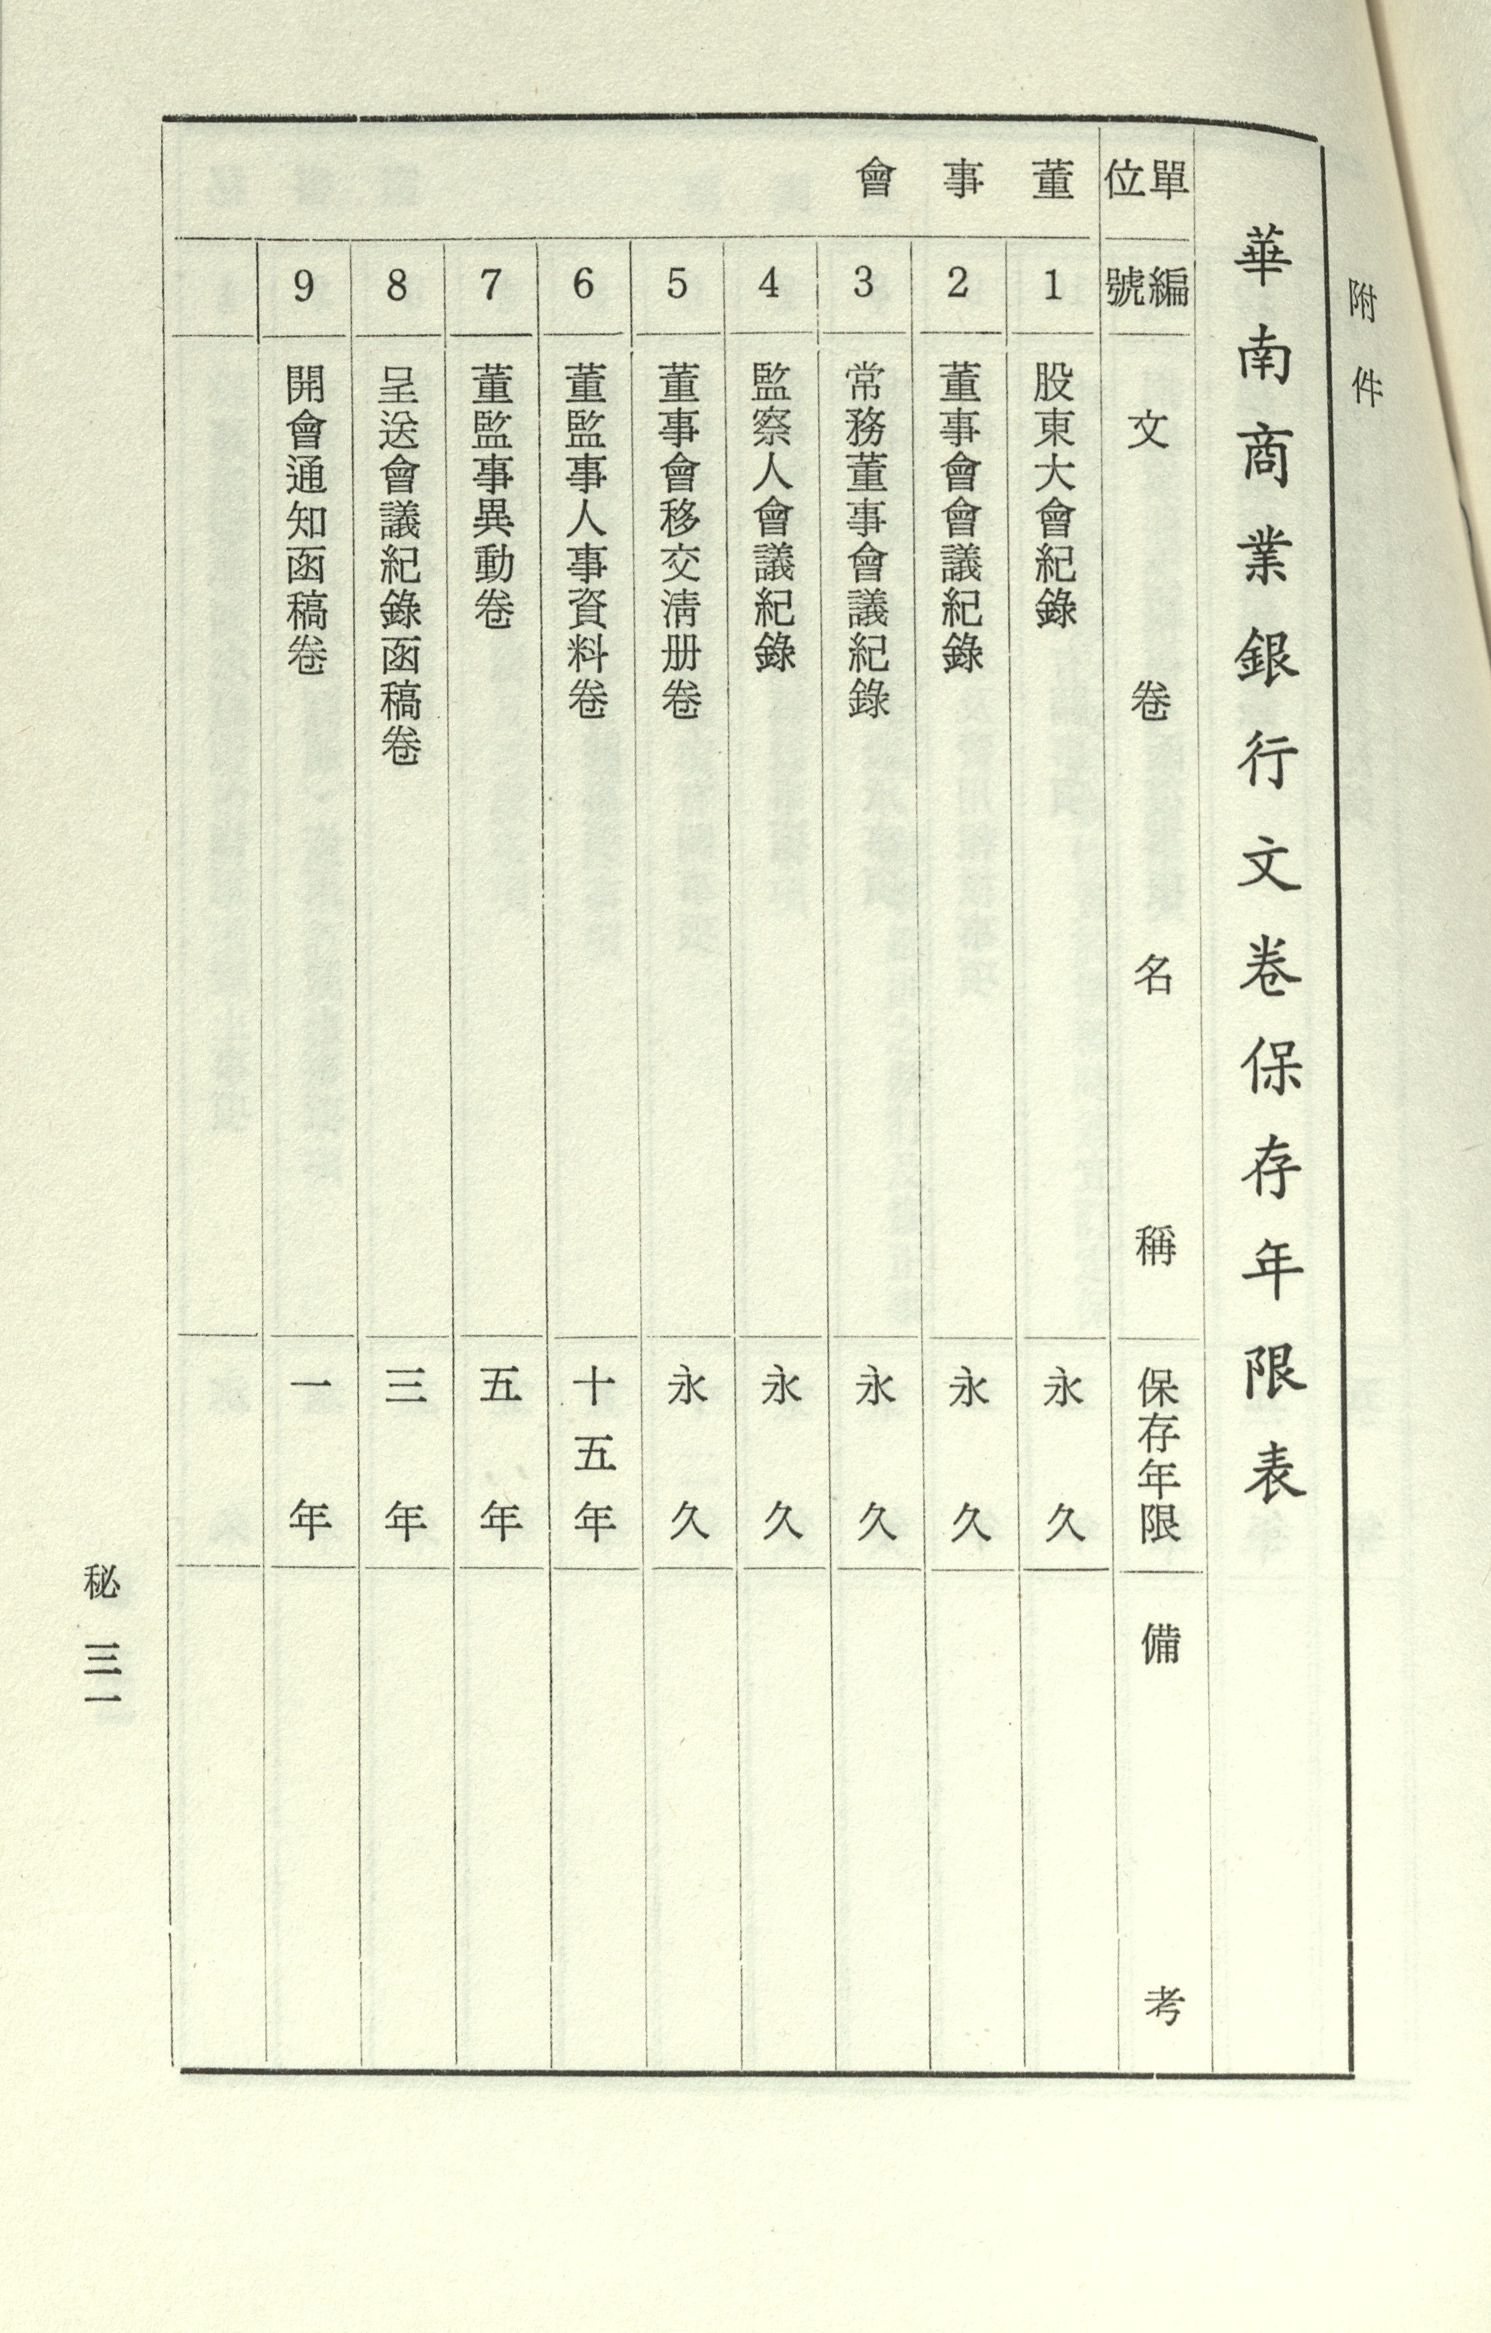 附件
華南商業銀行文卷保存年限表
單位 編號 文卷名稱 保存年限 備考
董事會
1 股東大會紀錄 永久
2 董事會會議紀錄 永久
3 常務董事會會議紀錄 永久
4 監察人會議紀錄 永久
5 董事會移交清册卷 永久
6 董監事人事資料卷 十五年
7 董監事異動卷 五年
8 呈送會議紀錄函稿卷 三年
9 開會通知函稿卷 一年
秘 三一